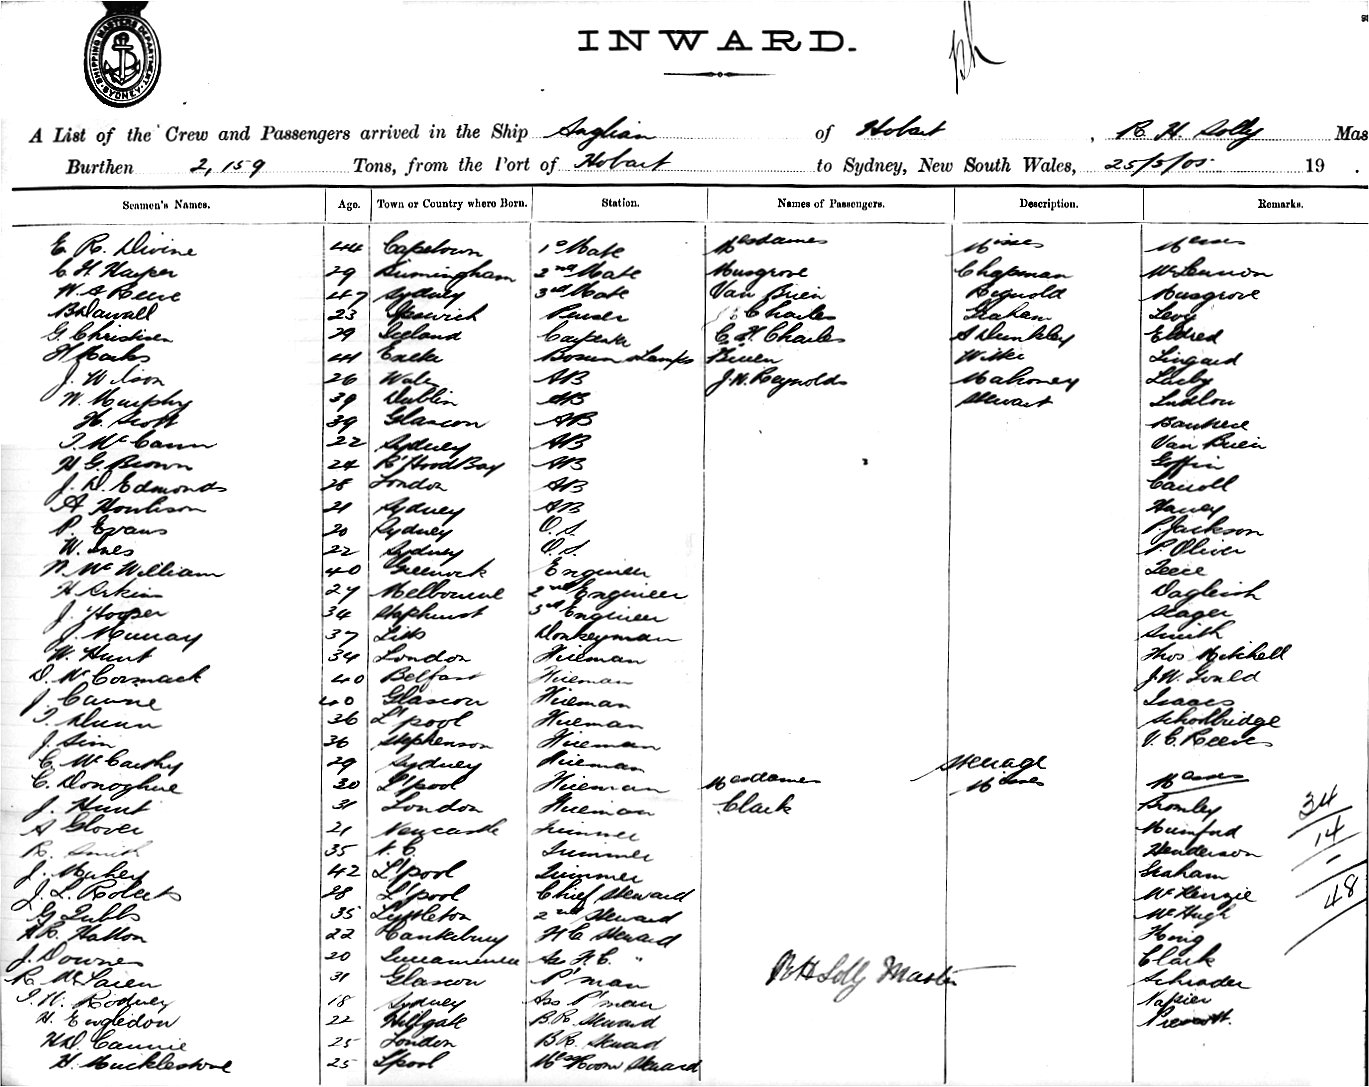 SHIPPING MASTERS DEPARTMENT SYDNEY
INWARD.
A List of the Crew and Passengers arrived in the Ship Anglian of Hobart, R. H. Solly Mas
Burthen 2,159 Tons, from the Port of Hobart to Sydney, New South Wales, 25/5/05 19 .
Seamen's Names. Age. Town or Country where Born. Station. Names of Passengers. Description. Remarks.
E. R. Divine 44 Capetown 1st Mate Mesdames Misses Messrs
C H Harper 29 Birmingham 2nd Mate Musgrove Chapman McLennon
W. A Reeve 47 Sydney 3rd Mate Van Brien Musgrove
23 Ipswich Purser Charles Graham Levy
G. Christisen 29 Iceland Carpenter C. H. Charles A Dunkley Eldred
H Parks 44 Exeter Bosun & Lamps Wilkie Lingard
J. Wilson 26 Wales AB J. W. Reynolds Mahoney
W. Murphy 39 Dublin AB Stewart Ludlow
H. Scott 39 Glascow AB
T. McCann 22 Sydney AB Van Brien
H G. Brown 24 R' Hood Bay AB Goffin
J. D. Edmonds 28 London AB Carroll
A Howlison 21 Sydney AB Harvey
P. Evans 20 Sydney O.S. P. Jackson
W. Ives 22 Sydney O.S. P. Oliver
N. McWilliam 40 Greenock Engineer
H Arkins 27 Melbourne 2nd Engineer Dagleish
J. Hooper 34 Staphurst 3rd Engineer Seager
J. Murray 37 Donkeyman Smith
W. Hunt 34 London Fireman Thos Mitchell
D. McCormack 40 Belfast Fireman J. W. Gould
J. Cawne 40 Glascow Fireman Isaacs
T. Dunn 36 L'pool Fireman Schoolbridge
J. Sim 36 Stephenson Fireman V. C. Reeves
C. McCarthy 29 Sydney Fireman Steerage
C. Donoghue 30 L'pool Fireman Mesdames Misses Messrs
J. Hunt 31 London Fireman Clark Bromley 34
A Glover 21 Newcastle Trimmer Mumford 14
R. Smith 35 N. C. Trimmer Henderson
J. Maher 42 L'pool Trimmer Graham
J. L. Roberts 28 L'pool Chief Steward McKenzie 48
G Tubbs 35 Lyttleton 2nd Steward McHugh
A R. Hatton 22 Canterbury F C Steward King
J. Downes 20 Ass F. C. " Clark
R. McLaren 31 Glascow P'man R H Solly Master Schrader
T. W. Rodney 18 Sydney Ass P'man Napier
H. Engledon 22 B. R. Steward
H D. Cannie 25 London B R. Steward
H. Mucklestone 25 L'pool Mess Room Steward